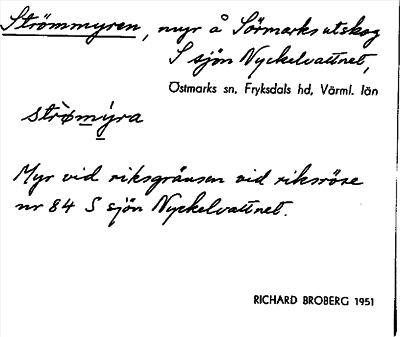 Strömmyren, myr å Sörmarks utskog
S sjön Nyckelvattnet,
Östmarks sn, Fryksdals hd, Värml. län
strò̱mý̱ra
Myr vid riksgränsen vid riksröse
nr 84 S sjön Nyckelvattnet.
RICHARD BROBERG 1951